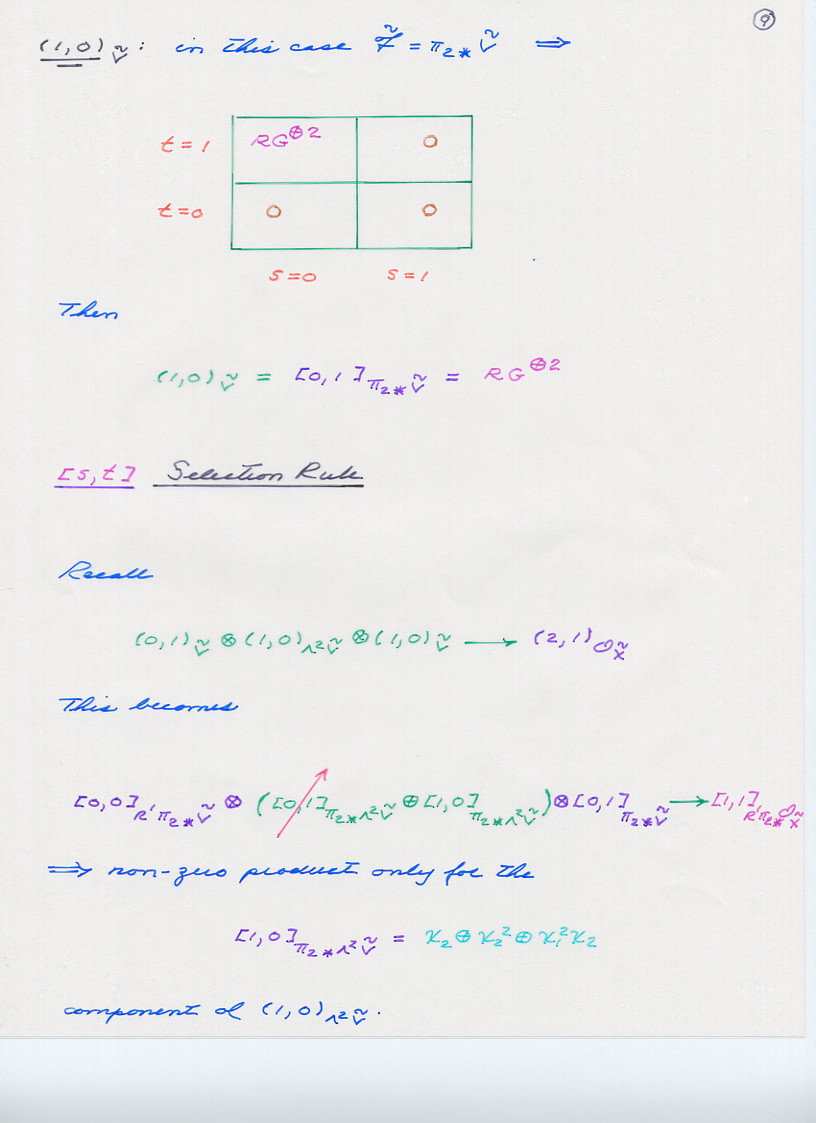 9
(1,0)_Ṽ : in this case 𝓕̃ = π₂* Ṽ ⟹
t = 1 RG^⊕2 0
t = 0 0 0
s = 0 s = 1
Then
(1,0)_Ṽ = [0,1]_π₂*Ṽ = RG^⊕2
[s,t] Selection Rule
Recall
(0,1)_Ṽ ⊗ (1,0)_Λ²Ṽ ⊗ (1,0)_Ṽ ⟶ (2,1)_𝒪X̃
This becomes
[0,0]_R'π₂*Ṽ ⊗ ([0,1]_π₂*Λ²Ṽ ⊕ [1,0]_π₂*Λ²Ṽ) ⊗ [0,1]_π₂*Ṽ ⟶ [1,1]_R'π₂*𝒪X̃
⟹ non-zero product only for the
[1,0]_π₂*Λ²Ṽ = χ₂ ⊕ χ₂² ⊕ χ₁²χ₂
component of (1,0)_Λ²Ṽ .